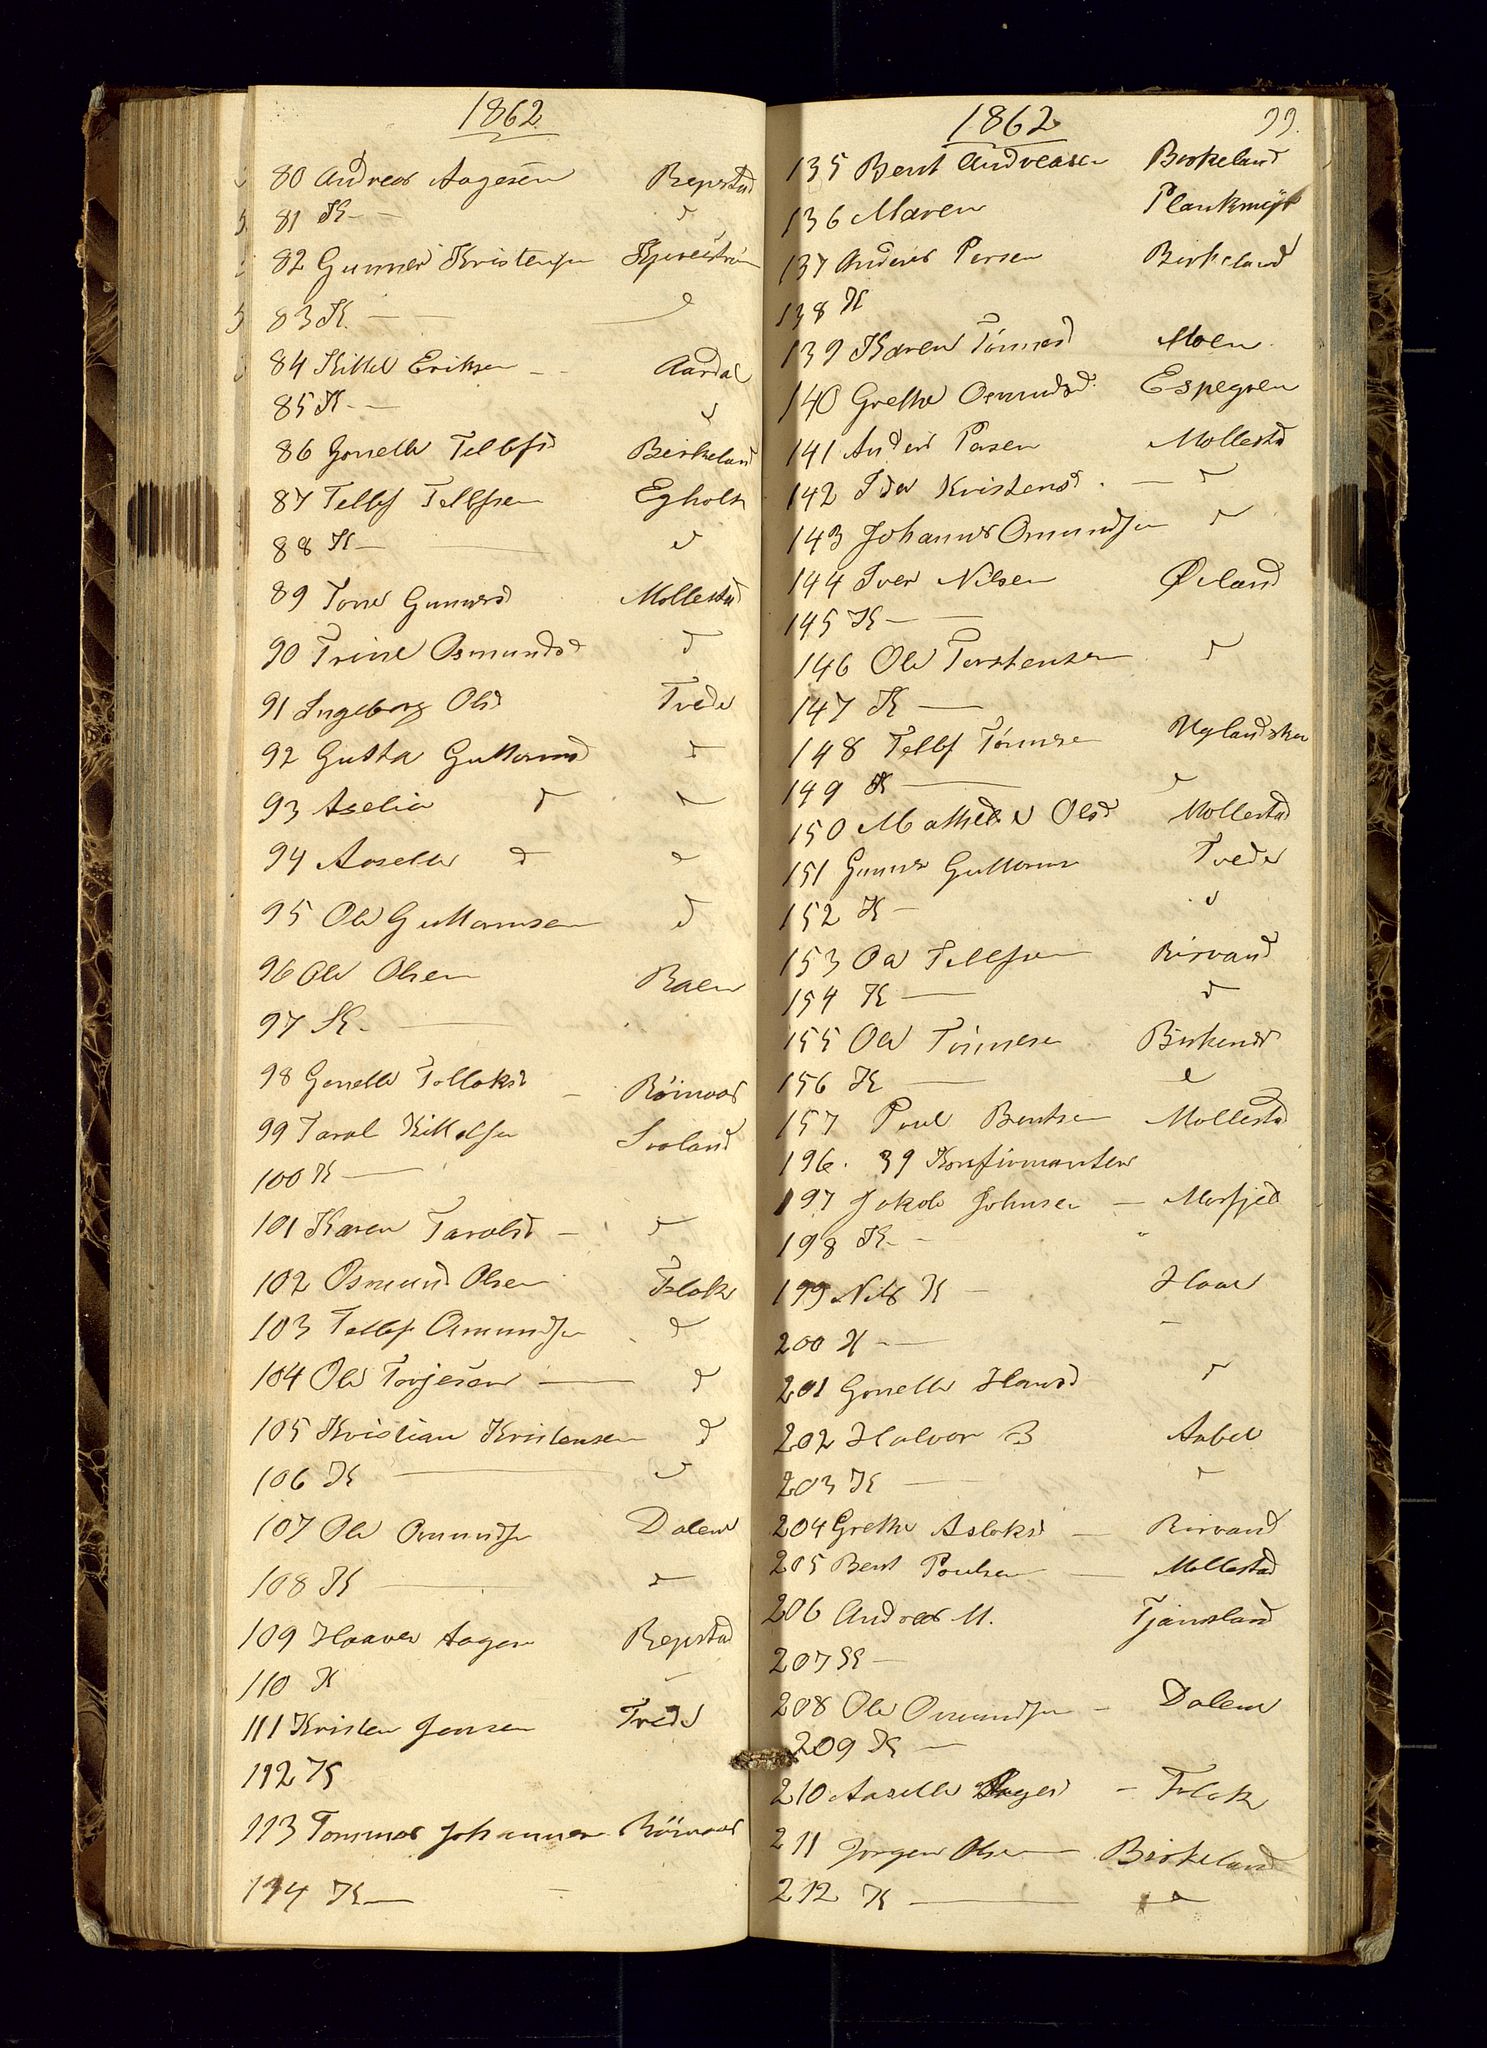 1862
80 Andreas Aagesen Repstad
81 K — d
82 Gunner Kristensen
83 K. — — d
84 Kittel Eriksen — Aardal
85 K — d
86 Gonelle Tellefsd Birkeland
87 Tellef Tellefsen Egholt
88 K — d
89 Tone Gunnersd Mollestad
90 Trine Osmundsd d
91 Ingeborg Olsd Tvede
92 Gutta Guttormsd d
93 Aselia d d
94 Aaselle d d
95 Ole Guttormsen d
96 Ole Olsen Raen
97 K. —
98 Gonelle Tollaksd — Röinaas
99 Tarol Kittelsen
100 K —
101 Karen Tarolsd — d
102 Osmund Olsen Flak
103 Tellef Osmundsen d
104 Ole Torjesen — d
105 Kristian Kristensen d
106 K — d
107 Ole Osmundsen Dalen
108 K — d
109 Haaver Aagesen Repstad
110 K —
111 Kristen Jensen Tvede
112 K
113 Tommas Johannesen Röinaas
114 K — —
1862 99.
135 Bent Andreasen Birkeland
136 Maren Plankmyr
137 Anders Persen Birkeland
138 K
139 Karen Tönnesd Moen
140 Grethe Osmundsd. Espegren
141 Anders Persen Mollestad
142 Ida Kristensd. — d
143 Johannes Omundsen d
144 Iver Nilsen Øvland
145 K — —
146 Ole Torstensen d
147 K —
148 Tellef Tönnesen
149 K — d
150 Mathilde Olsd Mollestad
151 Gunner Guttormsen Tvede
152 K — d
153 Ole Tellefsen Birvand
154 K — d
155 Ole Tönnesen
156 K — d
157 Poul Bentsen Mollestad
196. 39 Konfirmanter
197 Jakob Johnsen —
198 K — "
199 Nils K —
200 K — —
201 Gonelle Hansd d
202 Halvor B Aabel
203 K — d
204 Grethe Aslaksd — Birvand
205 Bent Poulsen — Mollestad
206 Andreas M. Tjamsland
207 K —
208 Ole Osmundsen — Dalen
209 K —
210 Aaselle Aagesd — Flak
211 Jorgen Olsen Birkeland
212 K — d